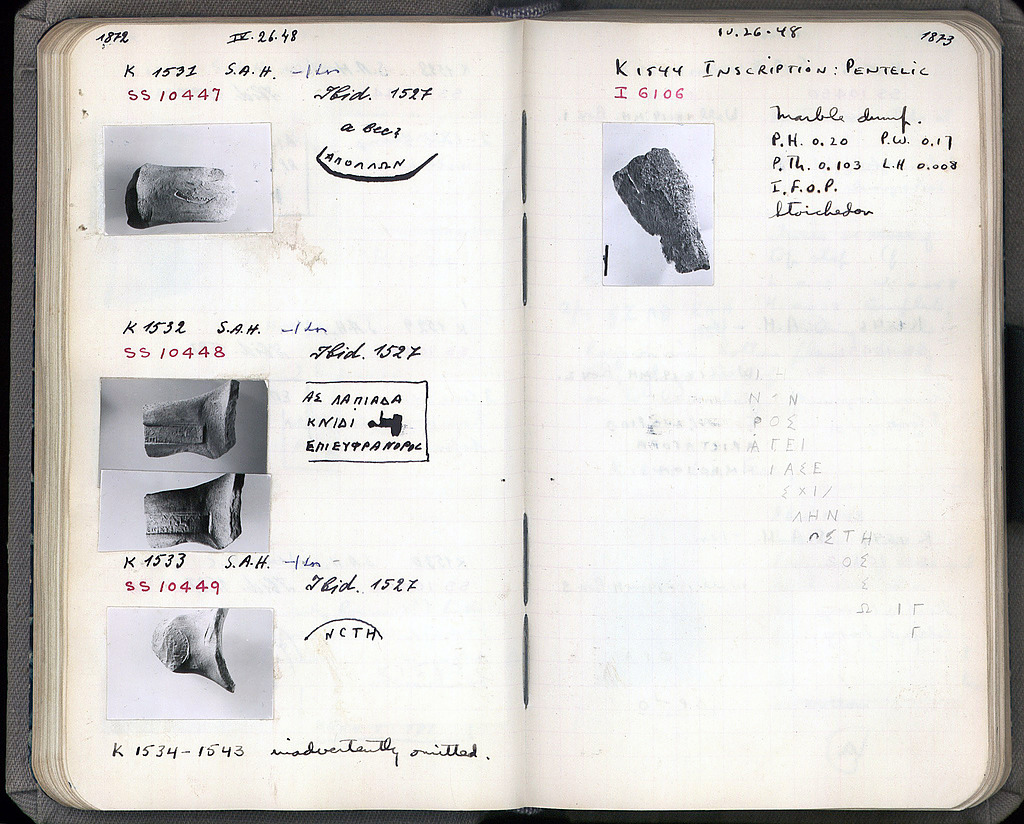 1872 IV.26.48
K 1531 S.A.H.
SS 10447 Ibid. 1527
ΑΠΟΛΛΩΝ
K 1532 S.A.H.
SS 10448 Ibid. 1527
ΑΣ ΛΑΠΙΑΔΑ
ΚΝΙΔΙ
ΕΠΙΕΥΦΡΑΝΟΡΟС
K 1533 S.A.H.
SS 10449 Ibid. 1527
ΝСΤΗ
K 1534-1543 inadvertently omitted.
IV.26.48 1873
K 1544 INSCRIPTION: PENTELIC
I 6106
Marble dump.
P.H. 0.20 P.W. 0.17
P.Th. 0.103 L.H 0.008
I.F.O.P.
Stoichedon
ΡΟΣ
ΙΑΣΕ
ΛΗΝ
ΟΣ
Σ
Ω ΙΓ
Γ